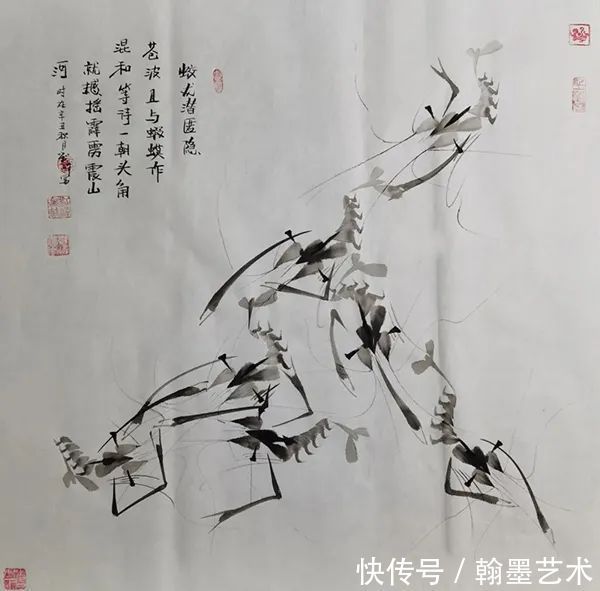 蛟龙潜匿隐
苍波且与蝦蟆作
混和等待一朝头角
就撼摇霹雳震山
河 时在辛丑秋月写
快传号 / 翰墨艺术